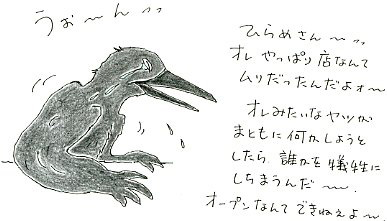 うぉ〜ん〃
ひらめさん〜〃
オレ やっぱり店なんて
ムリだったんだよォ〜
オレみたいなヤツが
まともに何かしようと
したら、誰かを犠牲に
しちまうんだ〜。
オープンなんて できねぇよ〜。